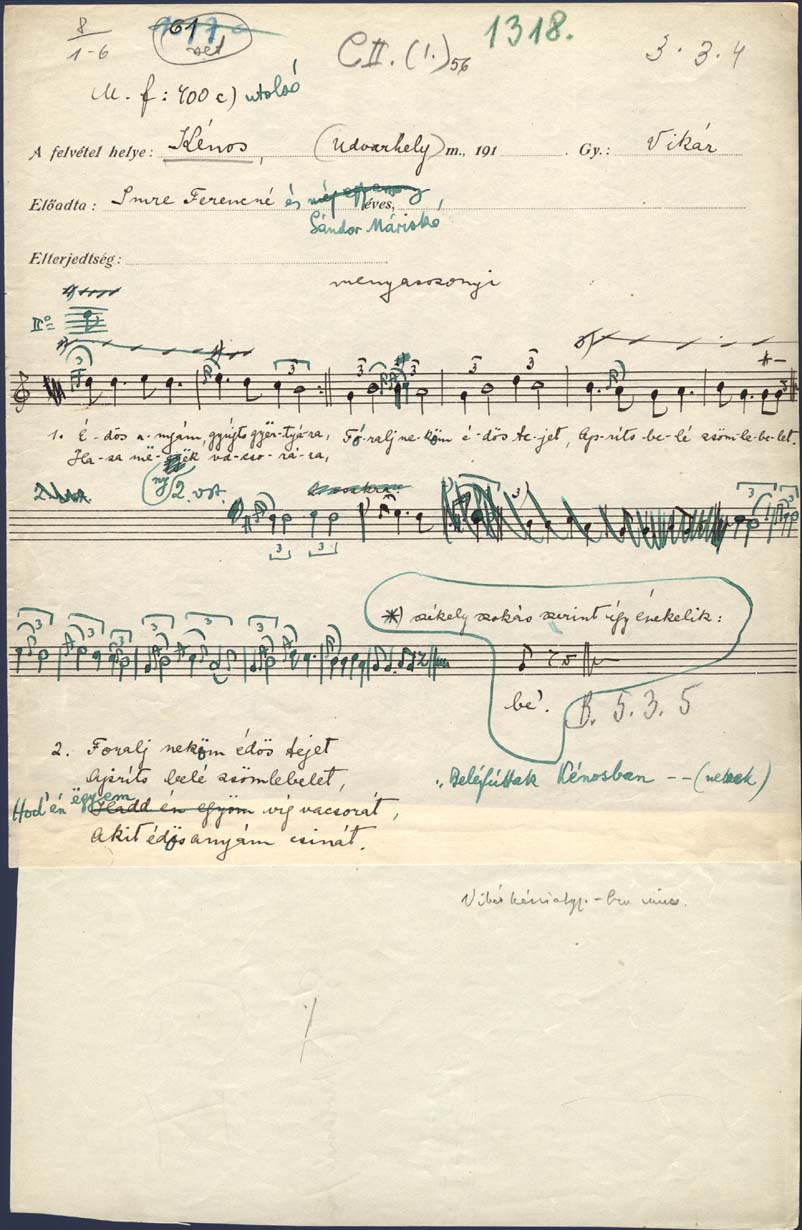 8
1-6
1318.
CII. (1.) 56
3. 3. 4
M. f: 400 c) utolsó
A felvétel helye: Kénos, (Udvarhely) m., 191 . Gy.: Vikár
Előadta: Imre Ferencné és éves,
Sándor Máriskó
Elterjedtség:
menyasszonyi
IIº=
1. É-dös a-nyám, gyújts gyër-tyá-ra, Fó-ralj ne-köm é-dös te-jet, Ap-ríts be-lé zsöm-le-be-let.
Ha-za më- -ëk va-cso-rá-ra,
2. vsz.
*) székely szokás szerint így éneklik:
be'.
B. 5. 3. 5
2. Foralj neköm édös tejet
Apríts belé zsömlebelet,
Hod' én ëgyem
Hadd én egyöm víg vacsorát,
Akit édösanyám csinát.
Beléfúttak Kénosban -- ( )